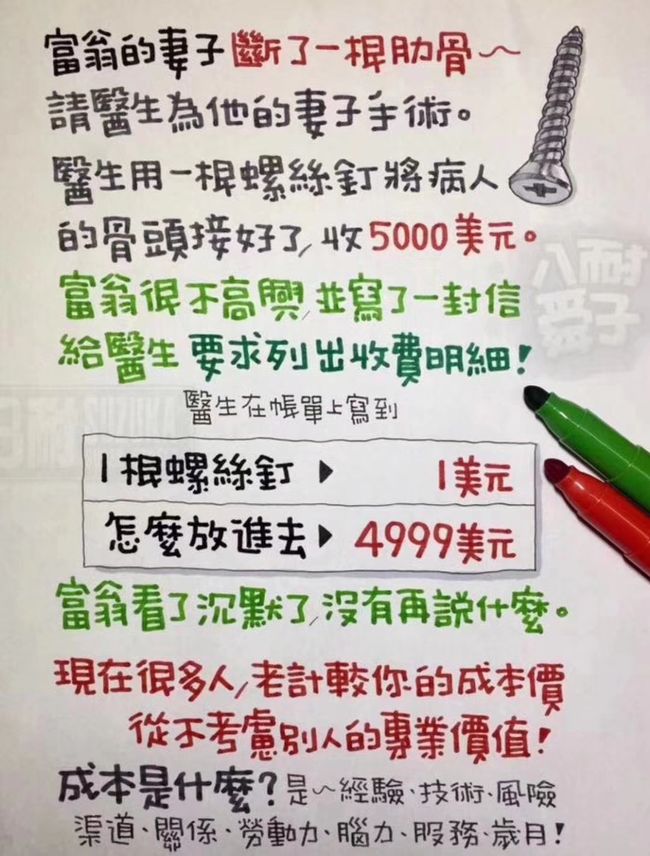 富翁的妻子斷了一根肋骨～
請醫生為他的妻子手術。
醫生用一根螺絲釘將病人
的骨頭接好了,收5000美元。
富翁很不高興,並寫了一封信
給醫生 要求列出收費明細!
醫生在帳單上寫到
1根螺絲釘▶ 1美元
怎麼放進去▶ 4999美元
富翁看了沉默了,沒有再説什麼。
現在很多人,老計較你的成本價
從不考慮別人的專業價值!
成本是什麼?是～經驗、技術、風險
渠道、關係、勞動力、腦力、服務、歲月!
八耐
舜子